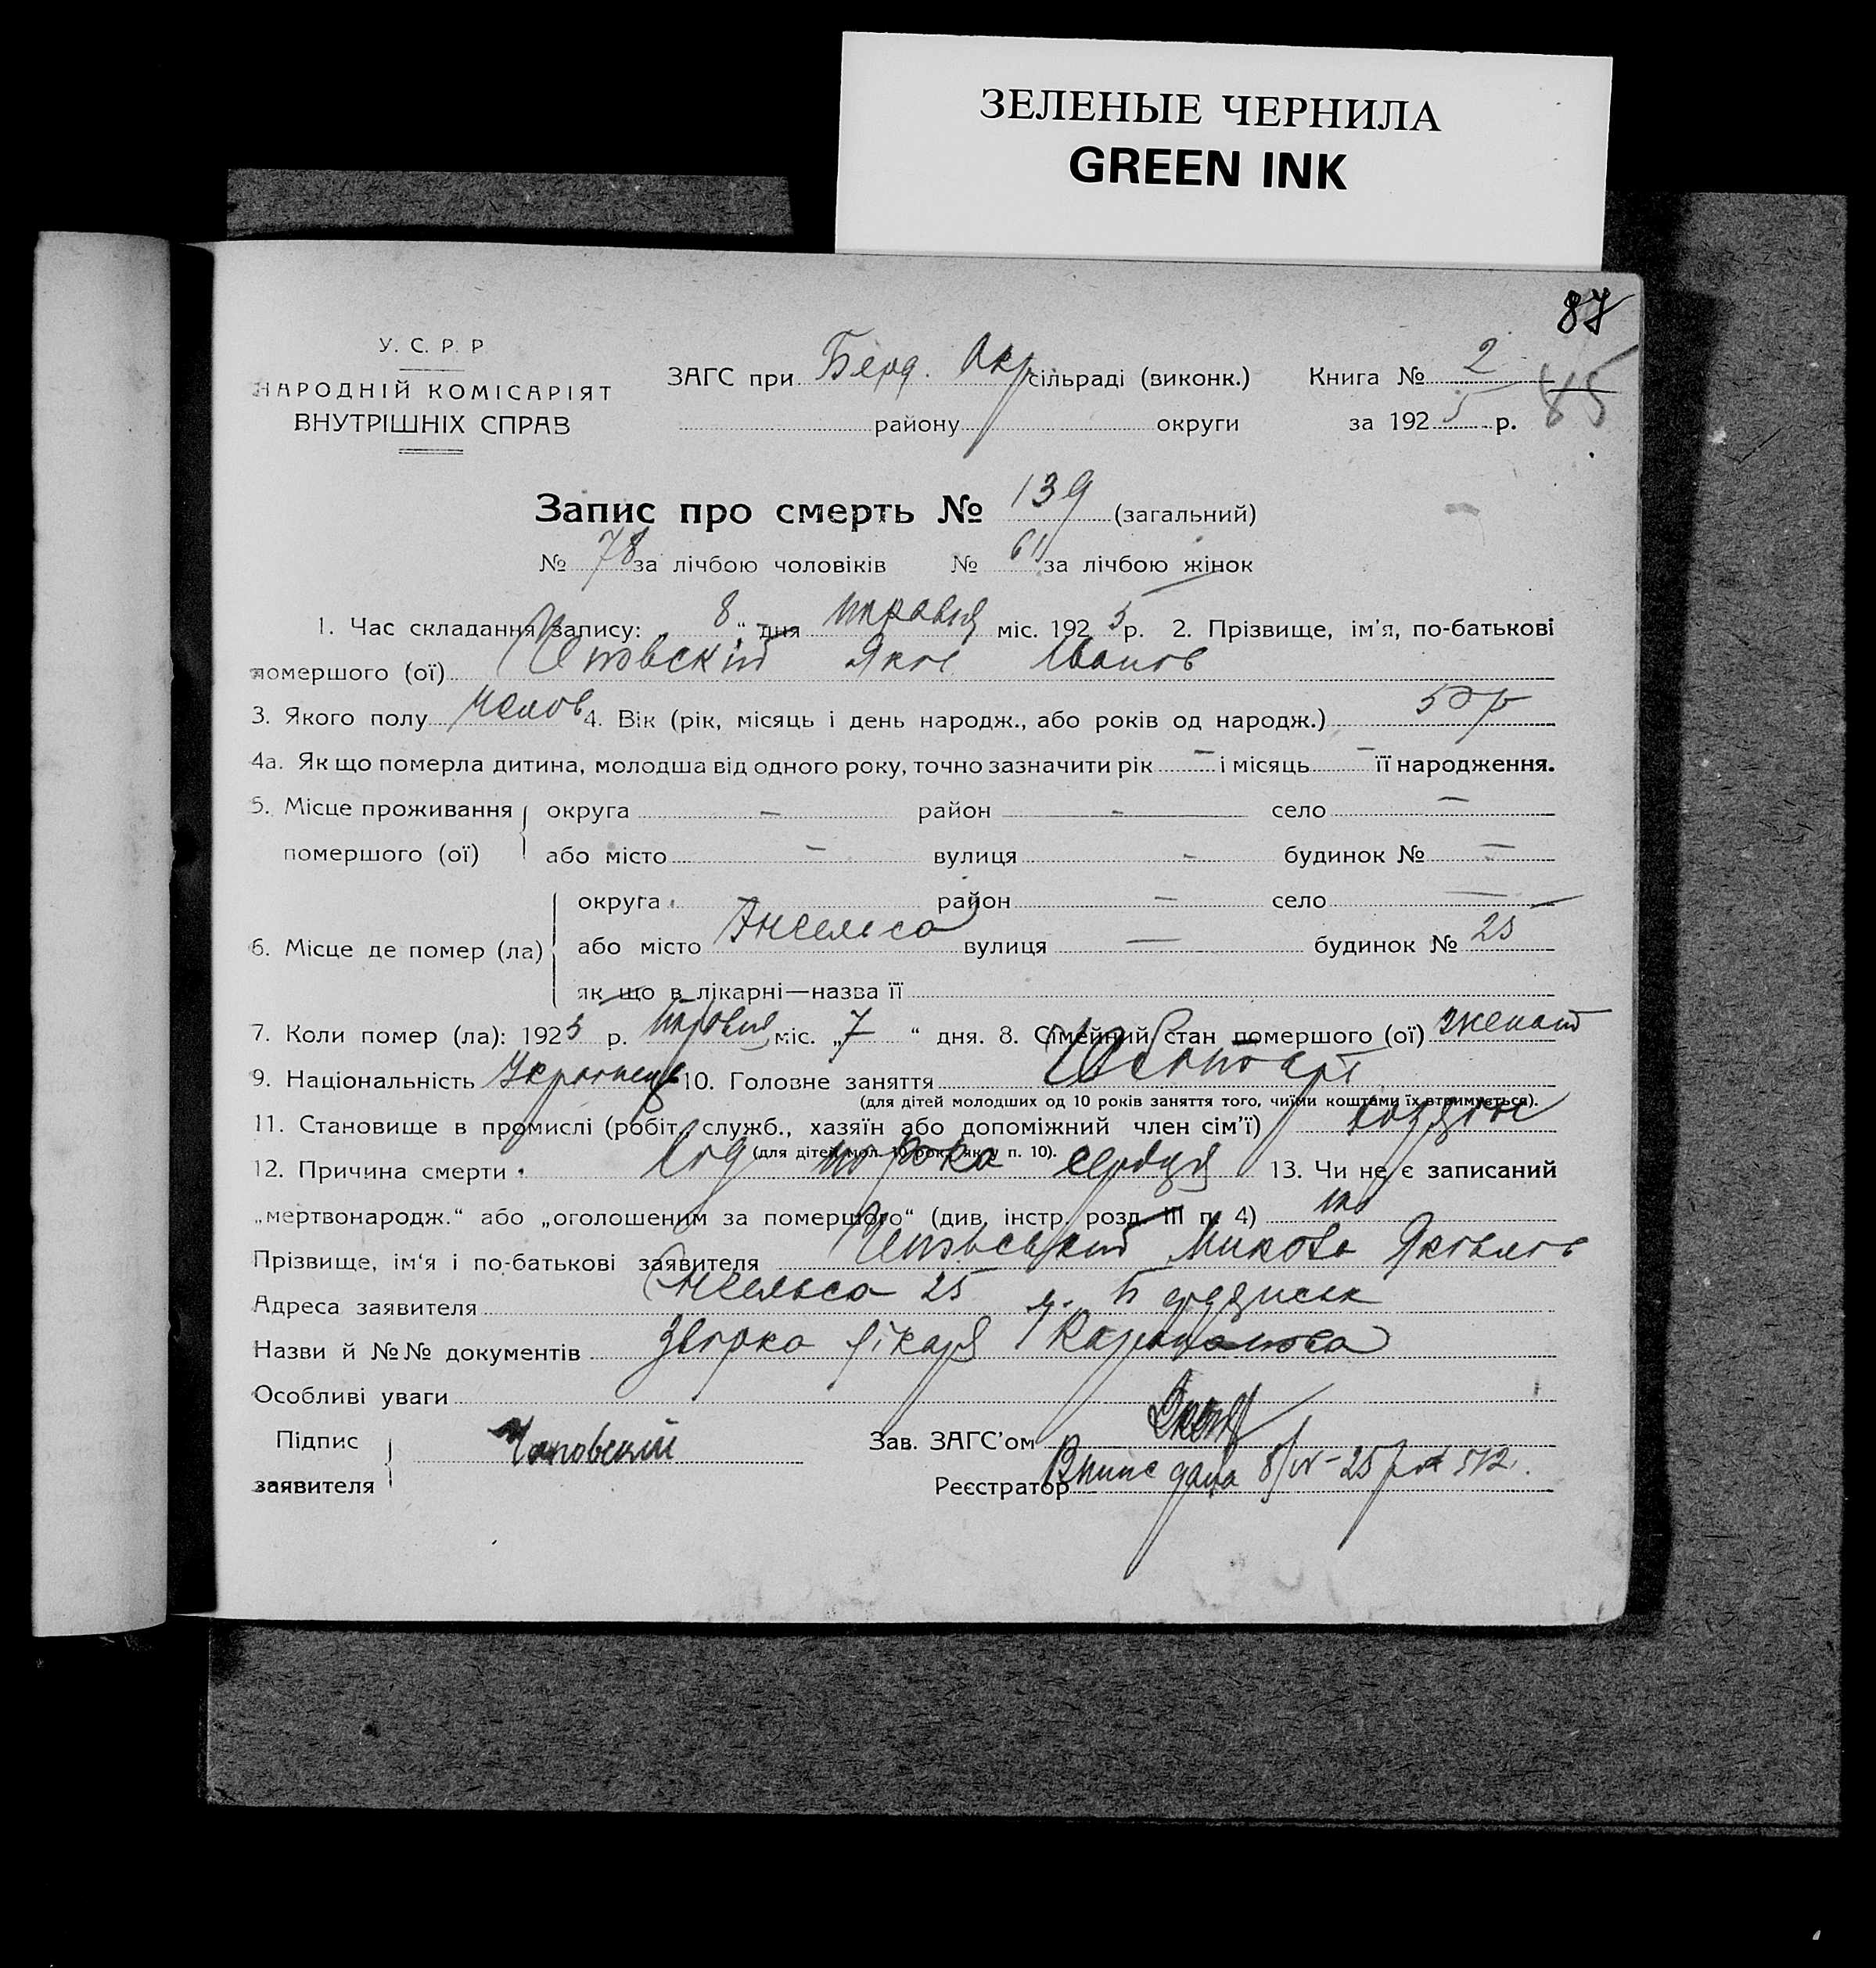 ЗЕЛЕНЫЕ ЧЕРНИЛА
GREEN INK
87
85
У. С. Р. Р
НАРОДНІЙ КОМІСАРІЯТ
ВНУТРІШНІХ СПРАВ
ЗАГС при Берд. Окр сільраді (виконк.)
району округи
Книга № 2
за 1925 р.
Запис про смерть № 139 (загальний)
№ 78 за лічбою чоловіків № 61 за лічбою жінок
1. Час складання запису: 8 „ дня травня міс. 1925 р. 2. Прізвище, ім'я, по-батькові
помершого (ої) Яков Іванов
3. Якого полу чолов 4. Вік (рік, місяць і день народж., або років од народж.) 50 р
4а. Як що померла дитина, молодша від одного року, точно зазначити рік – і місяць – її народження.
5. Місце проживання округа – район – село –
помершого (ої) або місто – вулиця – будинок № –
округа район – село –
6. Місце де помер (ла) або місто Энгельса вулиця – будинок № 25
як що в лікарні—назва її
7. Коли помер (ла): 1925 р. травня міс. „7 “ дня. 8. Сімейний стан помершого (ої) женат
9. Національність Українець 10. Головне заняття
(для дітей молодших од 10 років заняття того, чиїми коштами їх втримується).
11. Становище в промислі (робіт., служб., хазяїн або допоміжний член сім'ї) хазяїн
(для дітей мол. 10 рок., як у п. 10).
12. Причина смерти Від порока сердця 13. Чи не є записаний
„мертвонародж.“ або „оголошеним за помершого“ (див. інстр. розд. III п. 4) ні
Прізвище, ім'я і по-батькові заявителя Микола Яковлев
Адреса заявителя Энгельса 25 м. Бердянськ
Назви й №№ документів лікаря
Особливі уваги
Підпис
заявителя
Зав. ЗАГС'ом
Реєстратор дана 8/V-25 р № 572.